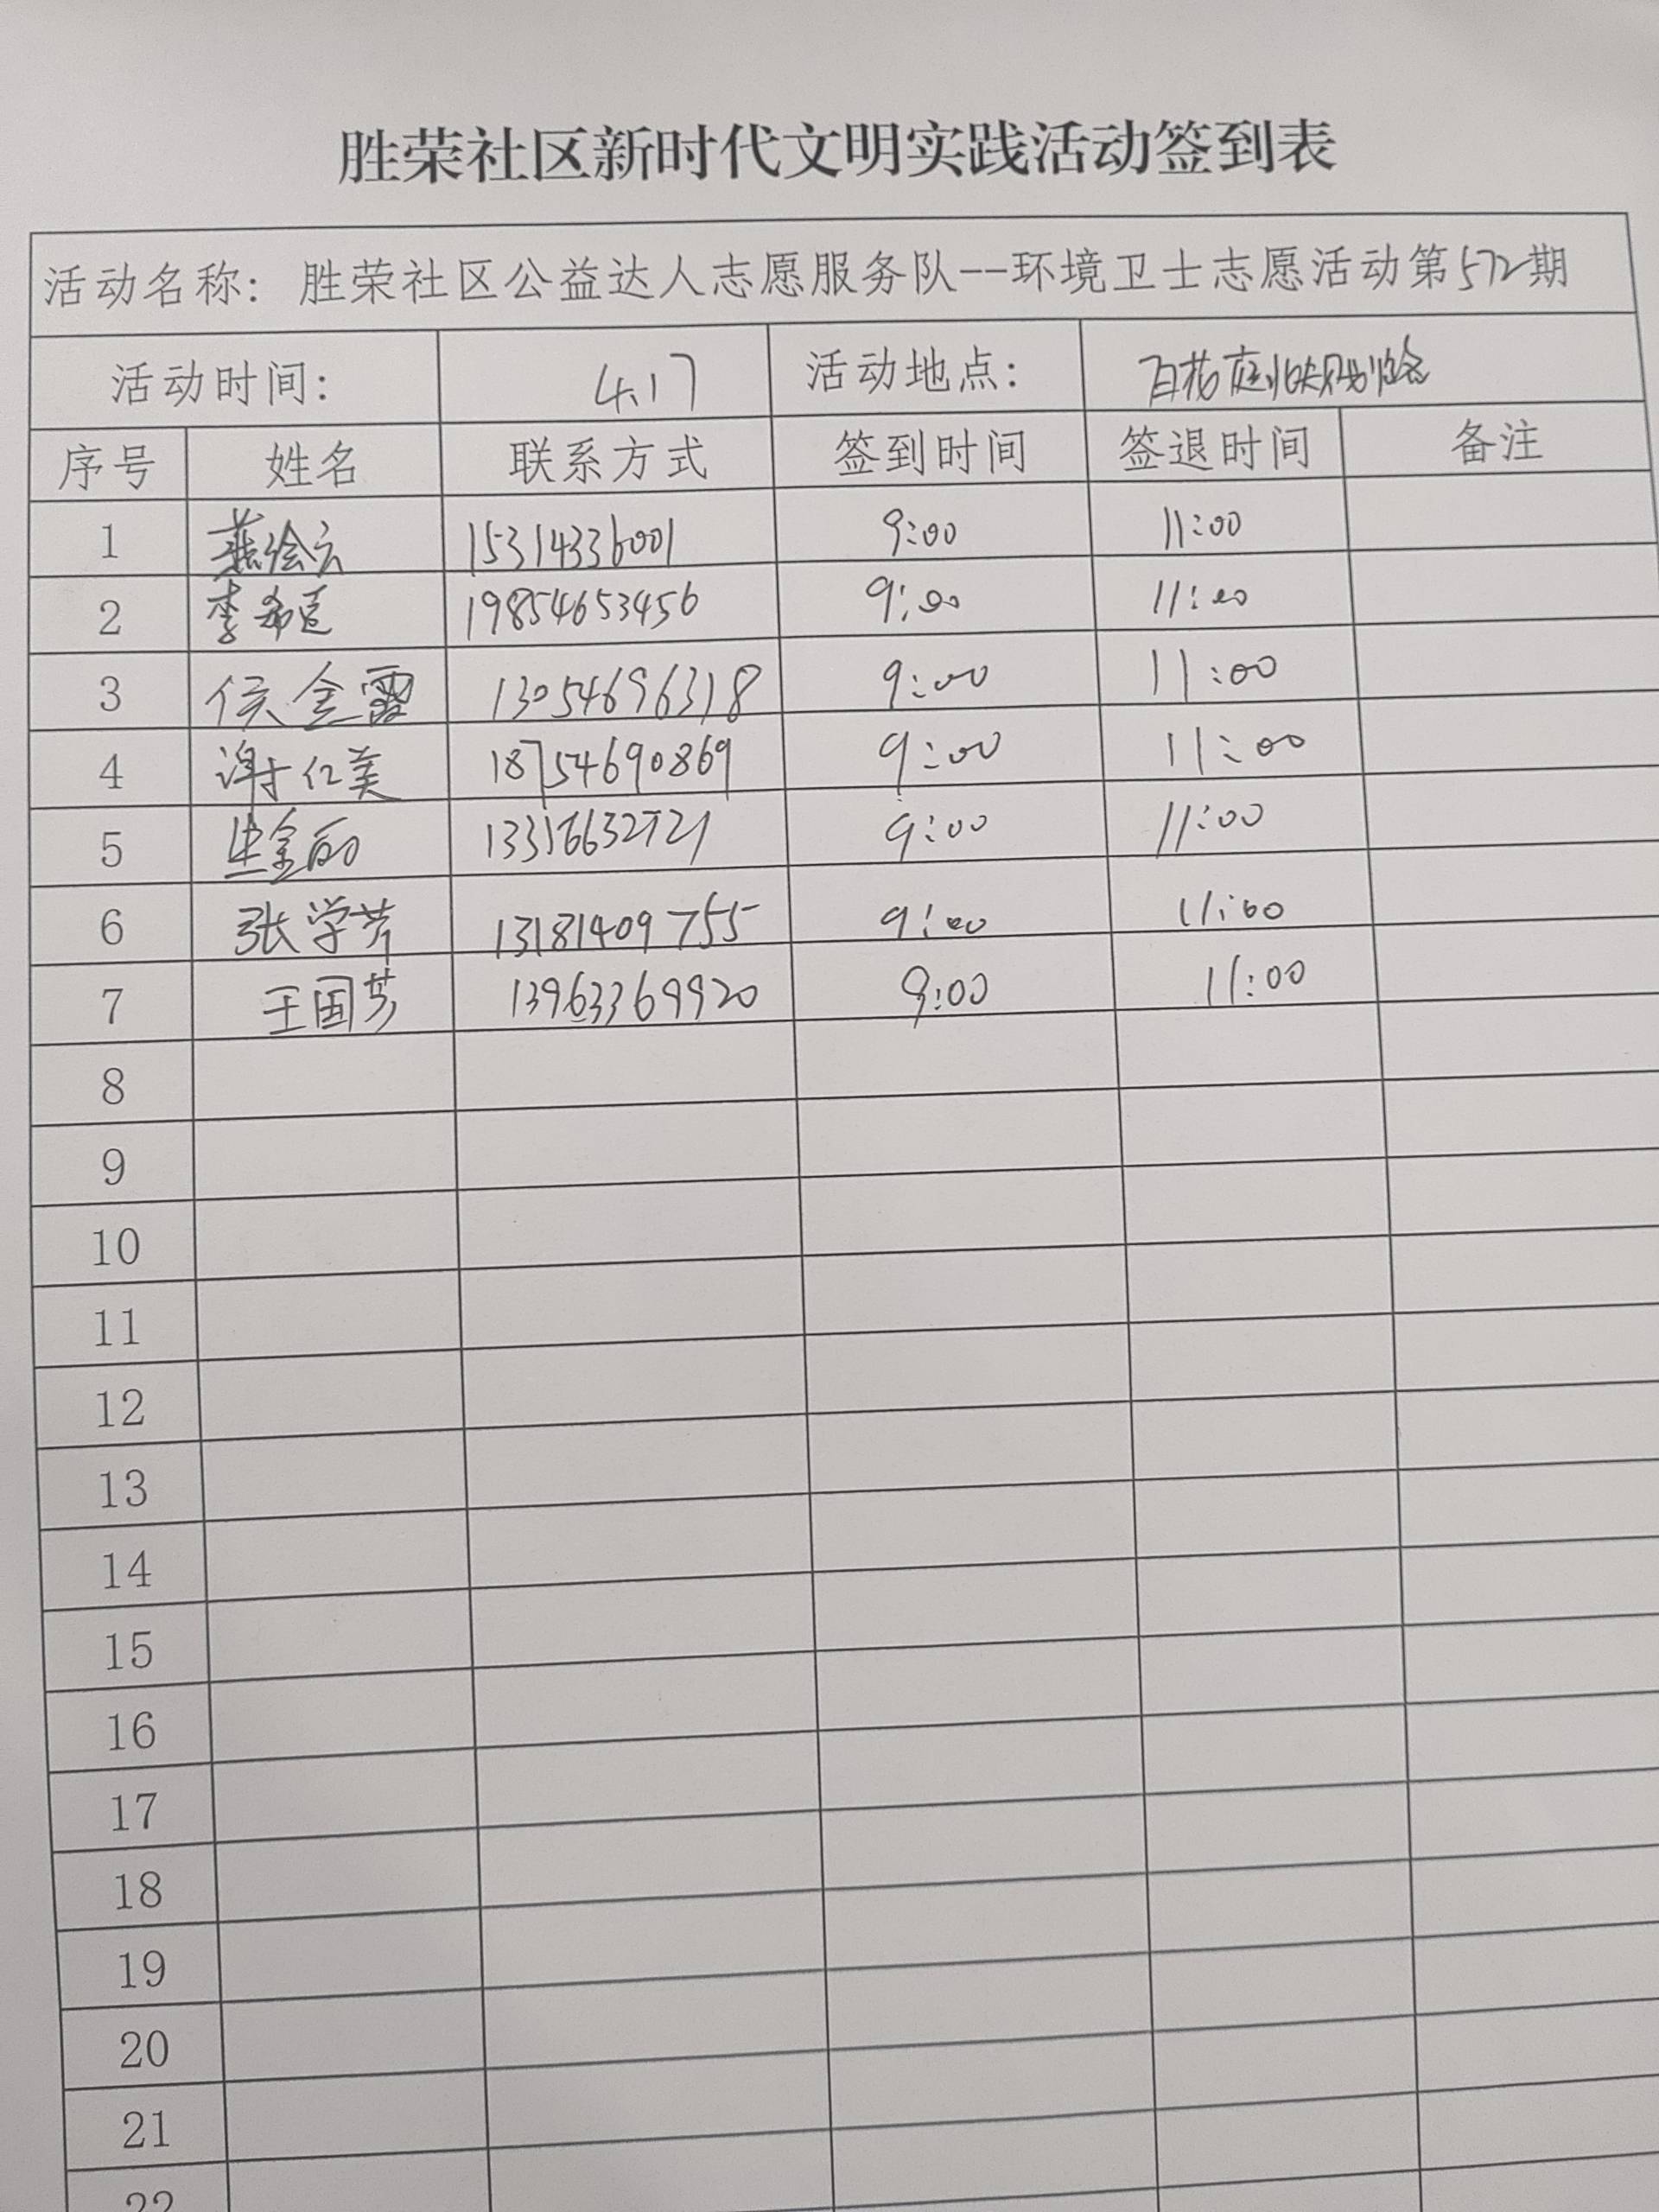 胜荣社区新时代文明实践活动签到表
活动名称：胜荣社区公益达人志愿服务队--环境卫士志愿活动第572期
活动时间： 4.17 活动地点： 百花庭
序号 姓名 联系方式 签到时间 签退时间 备注
1 燕绘云 15314336001 9:00 11:00
2 李希 19854653456 9:00 11:00
3 侯金霞 13054696318 9:00 11:00
4 谢仁美 18754690869 9:00 11:00
5 金丽 9:00 11:00
6 张学芹 13181409755 9:00 11:00
7 王国芳 13963369920 9:00 11:00
8
9
10
11
12
13
14
15
16
17
18
19
20
21
22